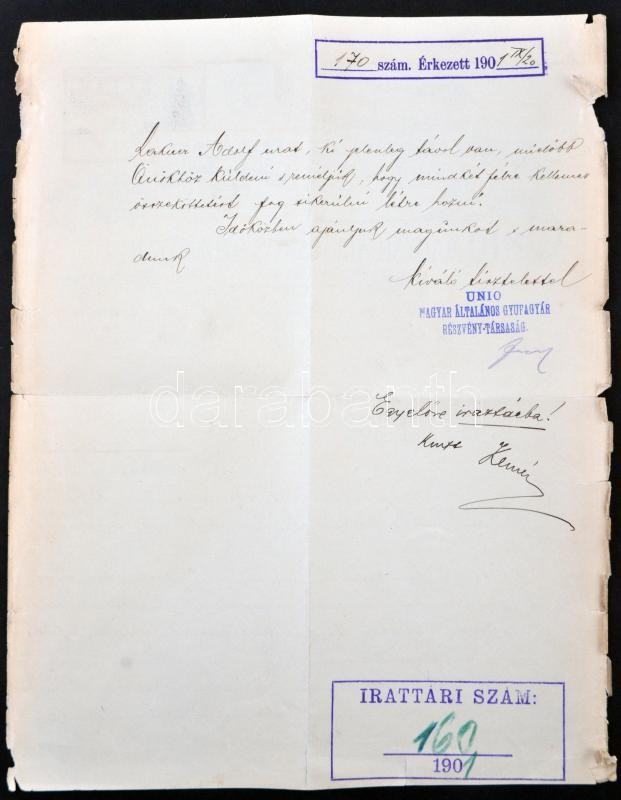 170 szám. Érkezett 1901 IX/20
Lakner Adolf urat, ki jelenleg távol van, mielőbb
Önökhöz küldeni s reméljük, hogy mindkét félre kellemes
összeköttetést fog sikerülni létre hozni.
Időközben ajánljuk magunkat s mara-
dunk
kiváló tisztelettel
UNIO
MAGYAR ÁLTALÁNOS GYUFAGYÁR
RÉSZVÉNY-TÁRSASÁG.
darabanth
Egyelőre irattárba!
IRATTÁRI SZÁM:
160
1901